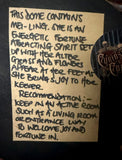 THIS DOME CONTAINS
MEI-LING. SHE IS AN
ENERGETIC FORTUNE
ATTRACTING SPIRIT SET
UP WITH HER ALTAR
CHESTS AND FLOWERS
APPEAR AT HER FEET AS
SHE BRINGS JOY TO HER
KEEPER.
RECOMMENDATION:
KEEP IN AN ACTIVE ROOM
SUCH AS A LIVING ROOM
OR ENTRANCE WAY
TO WELCOME JOY AND
FORTUNE IN.